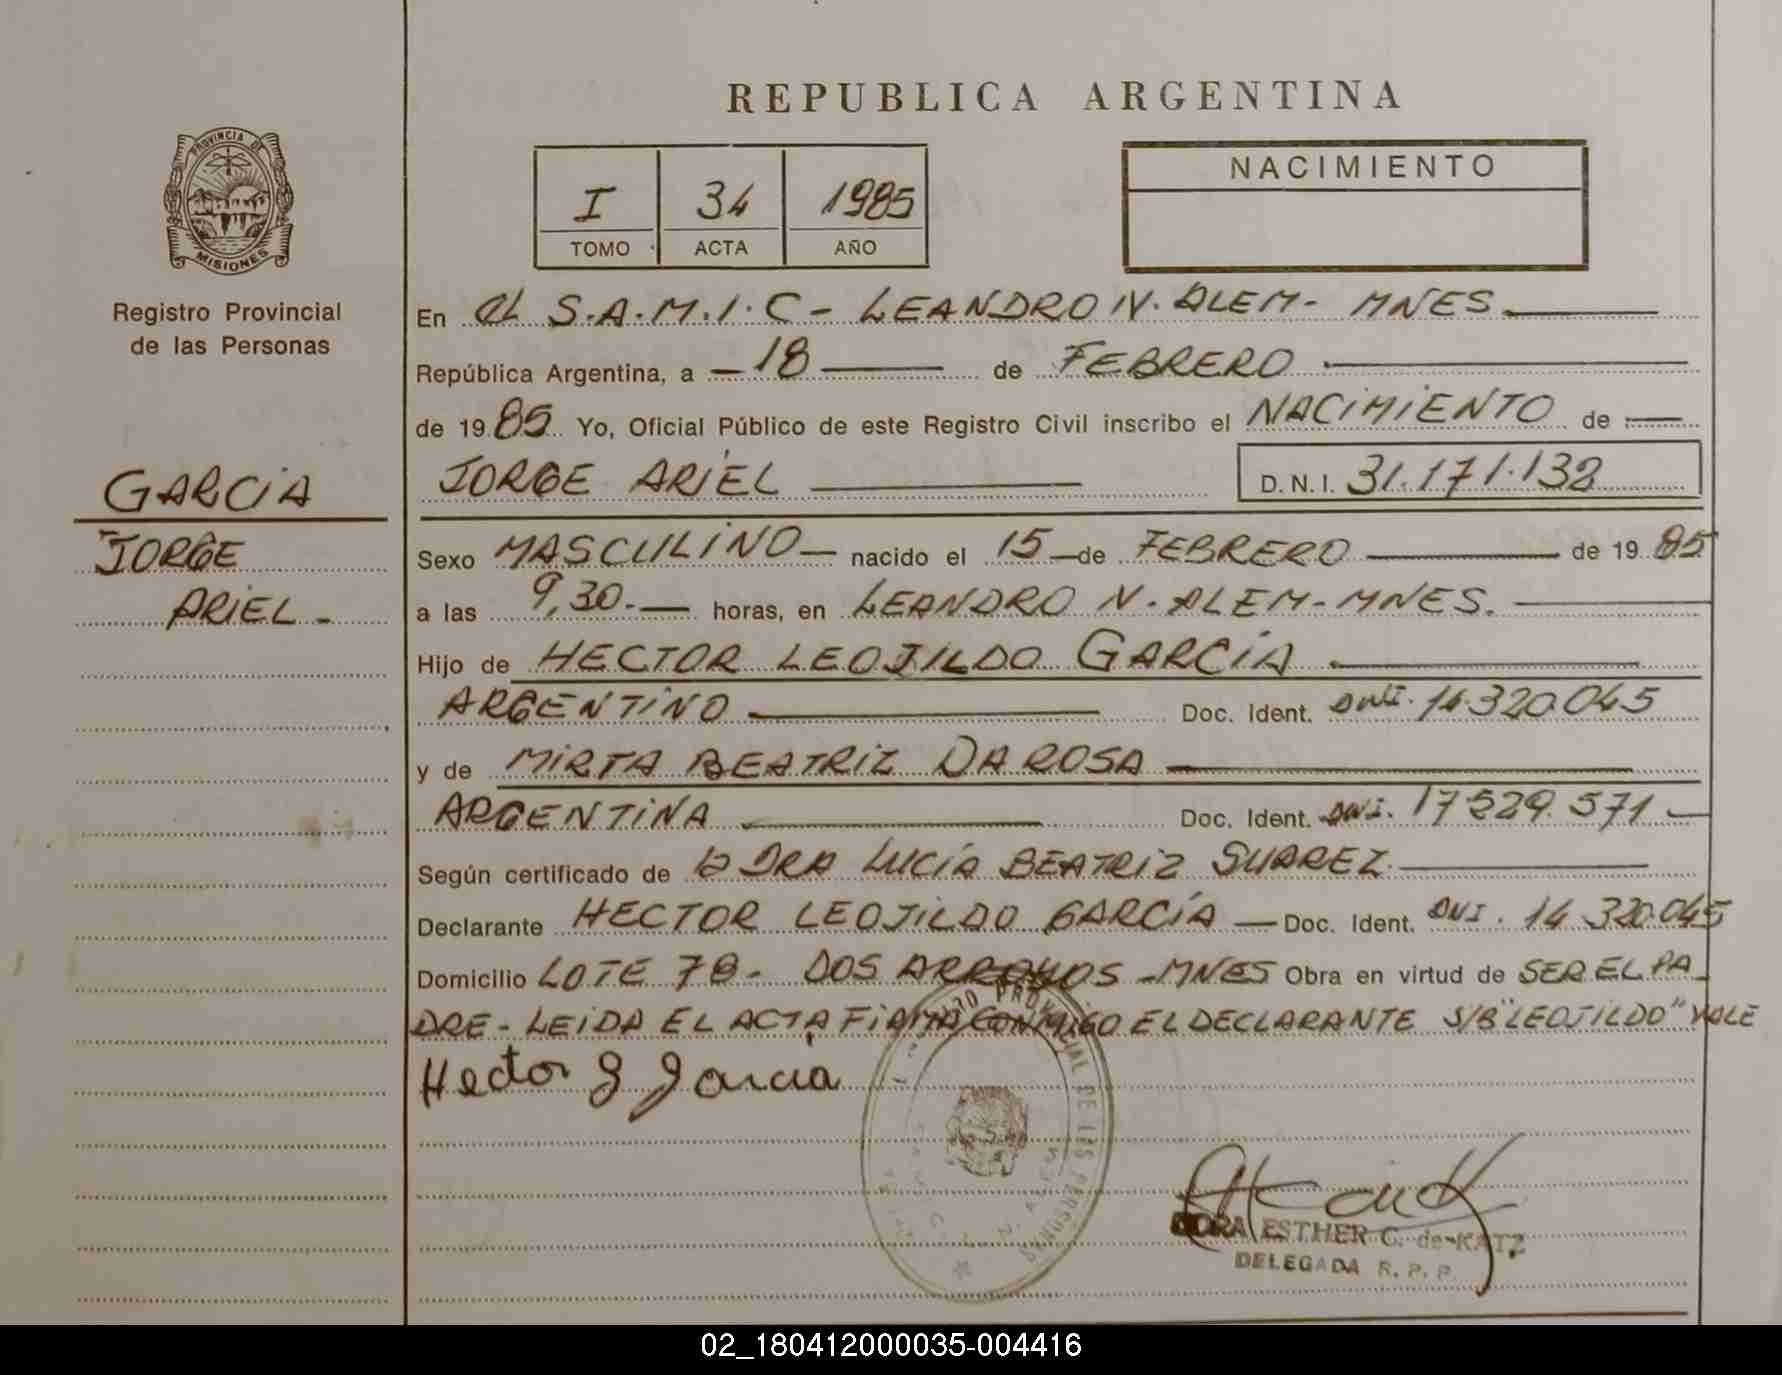 REPUBLICA ARGENTINA
PROVINCIA DE
MISIONES
Registro Provincial
de las Personas
I 34 1985
TOMO ACTA AÑO
NACIMIENTO
En el S.A.M.I.C - LEANDRO N. ALEM - MNES
República Argentina, a 18 de FEBRERO
de 1985 Yo, Oficial Público de este Registro Civil inscribo el NACIMIENTO de
GARCIA
JORGE ARIEL D.N.I. 31.171.132
JORGE
ARIEL -
Sexo MASCULINO nacido el 15 de FEBRERO de 1985
a las 9,30.- horas, en LEANDRO N. ALEM - MNES.
Hijo de HECTOR LEOJILDO GARCÍA
ARGENTINO Doc. Ident. DNI. 14.320.045
y de MIRTA BEATRIZ DA ROSA
ARGENTINA Doc. Ident. DNI. 17.529.571
Según certificado de la DRA LUCÍA BEATRIZ SUAREZ.
Declarante HECTOR LEOJILDO GARCÍA Doc. Ident. DNI. 14.320.045
Domicilio LOTE 78 - DOS ARROYOS - MNES Obra en virtud de SER EL PA
DRE - LEIDA EL ACTA FIRMA CONMIGO EL DECLARANTE S/B "LEOJILDO" VALE
Hector L Garcia
PROVINCIAL DE LAS PERSONAS
DORA ESTHER C. de KATZ
DELEGADA R. P. P.
02_180412000035-004416